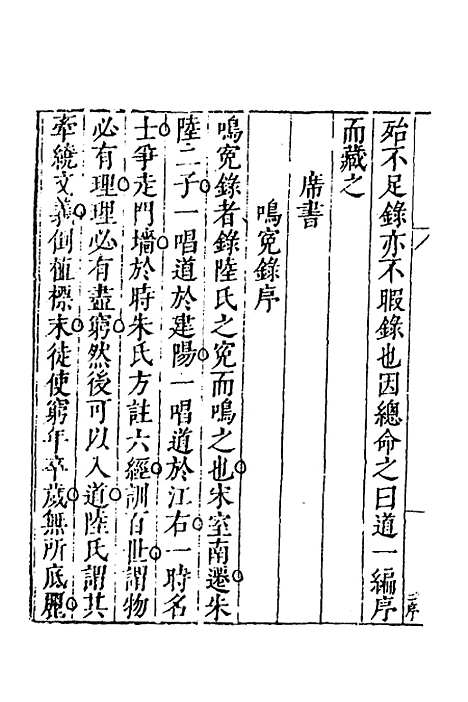 殆不足錄亦不暇錄也因總命之曰道一編序
而藏之
席書
鳴冤錄序
鳴冤錄者錄陸氏之冤而鳴之也宋室南遷朱
陸二子一唱道於建陽一唱道於江右一時名
士爭走門墻於時朱氏方註六經訓百世謂物
必有理理必有盡窮然後可以入道陸氏謂其
牽繞文義倒植標末徒使窮年卒歲無所底麗
序